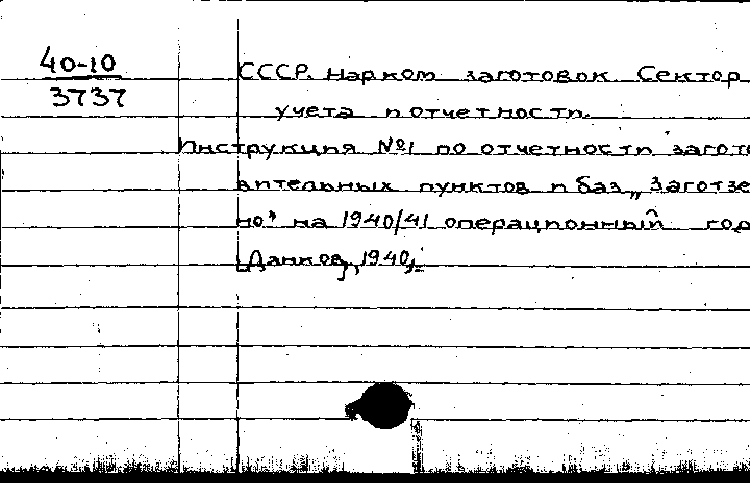 40-10
3737
СССР. Нарком заготовок. Сектор
учета и отчетности.
Инструкция №1 по отчетности загото
вительных пунктов и баз „Заготзе
но" на 1940/41 операционный год
[Данков], 1940.